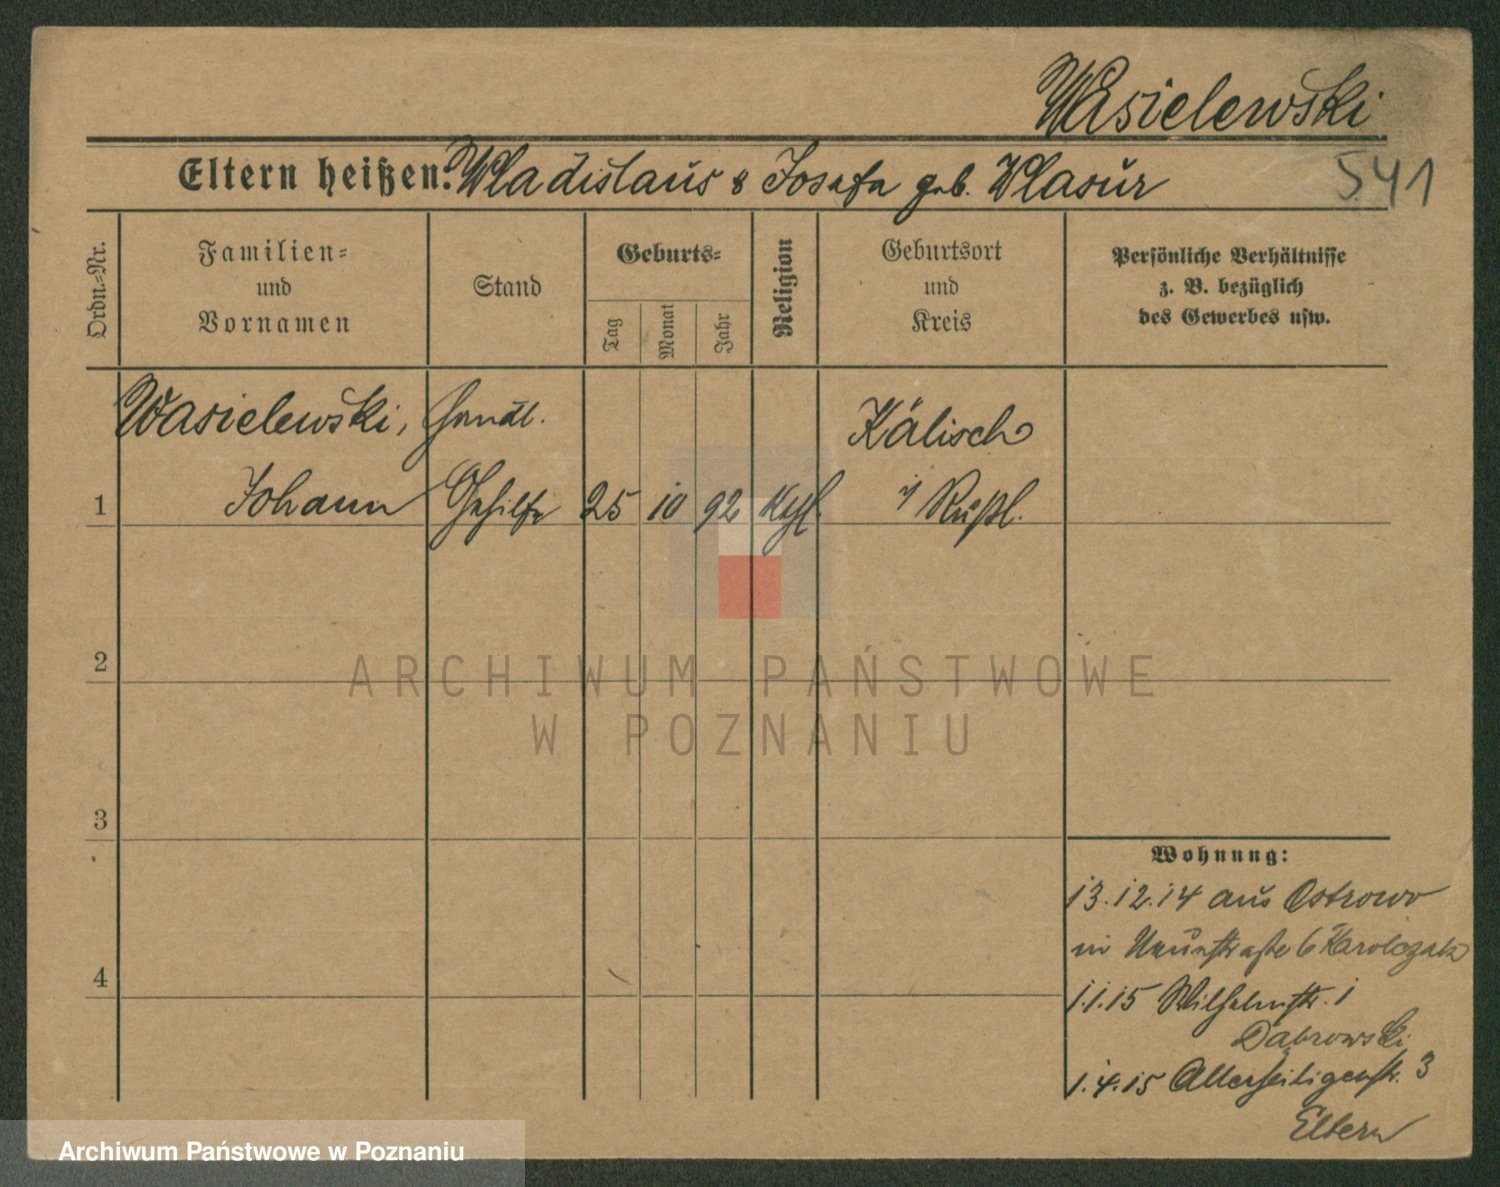 Wasielewski
Eltern heißen: Wladislaus & Josefa geb. Wlasur
541
Ordn.-Nr.
Familien-
und
Vornamen
Stand
Geburts-
Tag
Monat
Jahr
Religion
Geburtsort
und
Kreis
Persönliche Verhältnisse
z. B. bezüglich
des Gewerbes usw.
Wasielewski, Handl.
Kalisch
1 Johann Gehilfe 25 10 92 kath. i/ Rußl.
2
3
4
Wohnung:
13.12.14 aus Ostrowo
in 6 Karolczak
1.1.15 Wilhelmstr. 1
Dąbrowski
1.4.15 Allerheiligenstr. 3
Eltern
ARCHIWUM PAŃSTWOWE
W POZNANIU
Archiwum Państwowe w Poznaniu